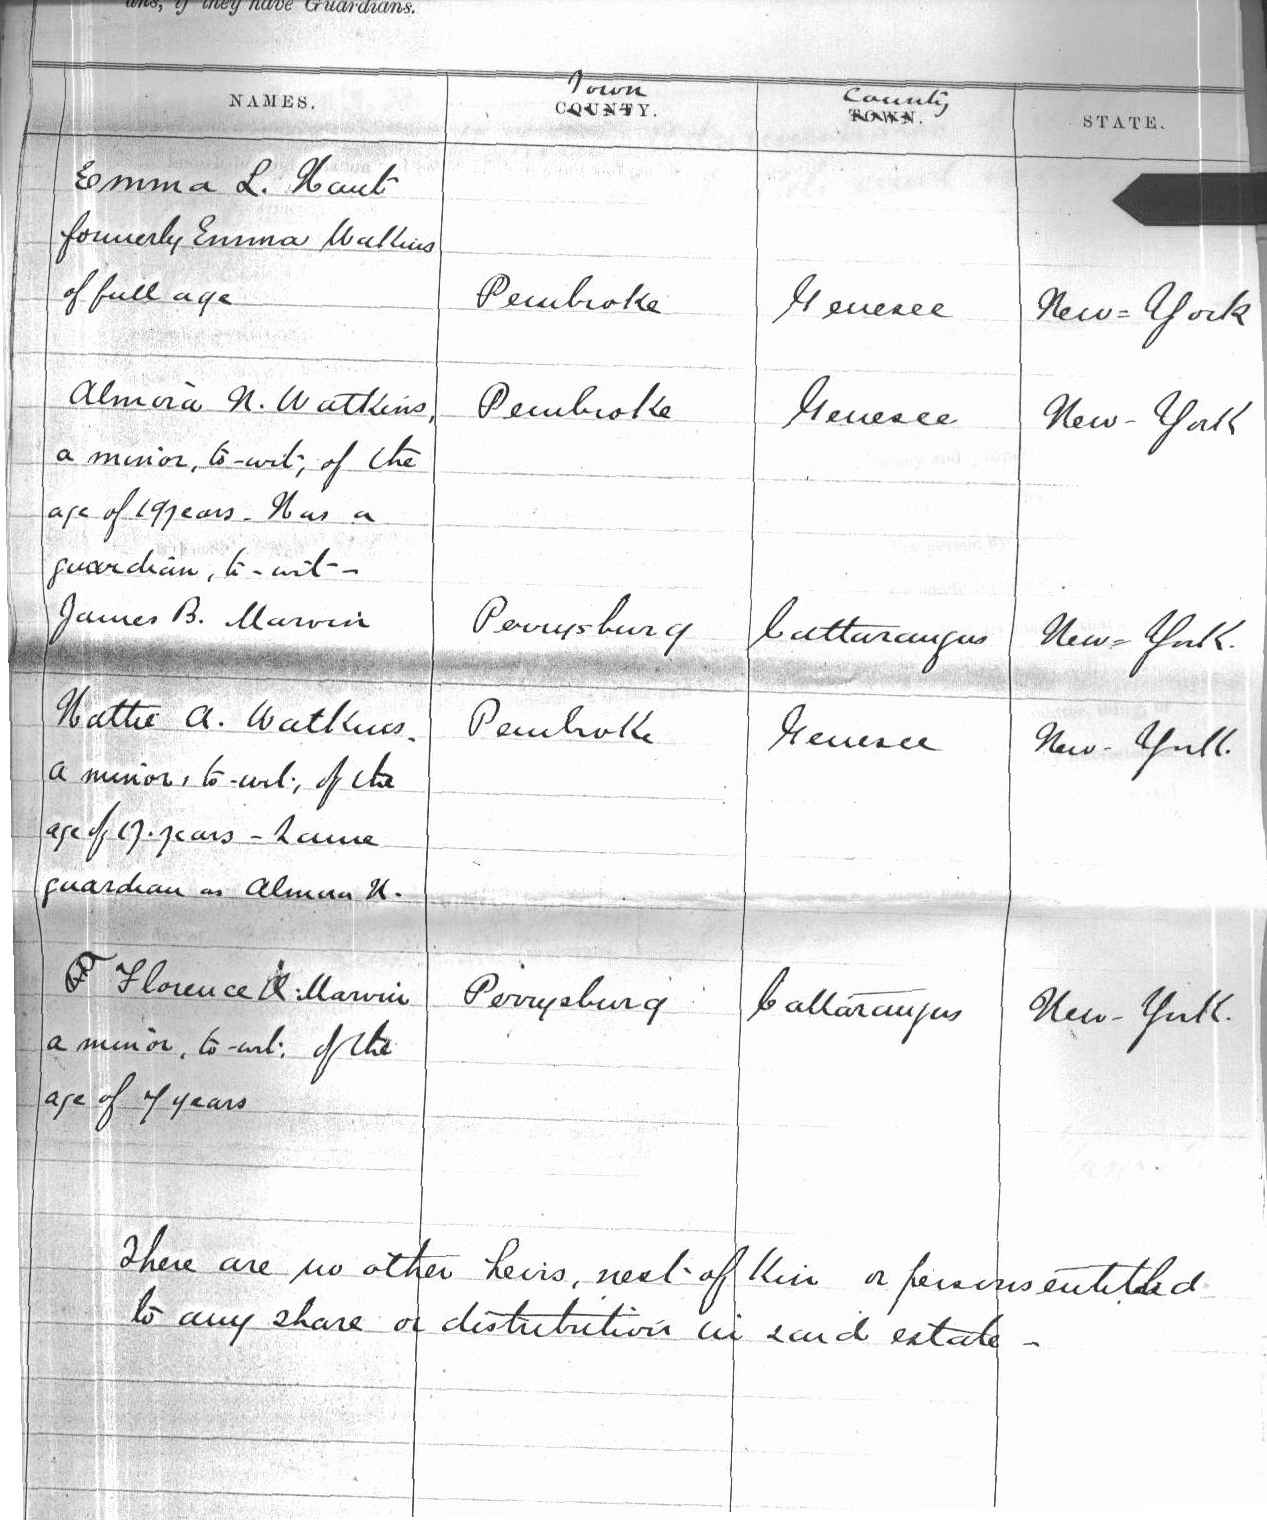 ans, if they have Guardians.
NAMES. Town COUNTY. County TOWN. STATE.
Emma L. Haut
formerly Emma Watkins
of full age Pembroke Genesee New=York
Almira N. Watkins, Pembroke Genesee New-York
a minor, to-wit; of the
age of 19 years. Has a
guardian, to-wit-
James B. Marvin Perrysburg Cattaraugus New=York.
Hattie A. Watkins. Pembroke Genesee New-York.
a minor, to-wit; of the
age of 17. years - Same
guardian as Almira N.
Florence A. Marvin Perrysburg Cattaraugus New-York.
a minor, to-wit; of the
age of 7 years
There are no other heirs, next-of Kin or persons entitled
to any share or distribution in said estate -